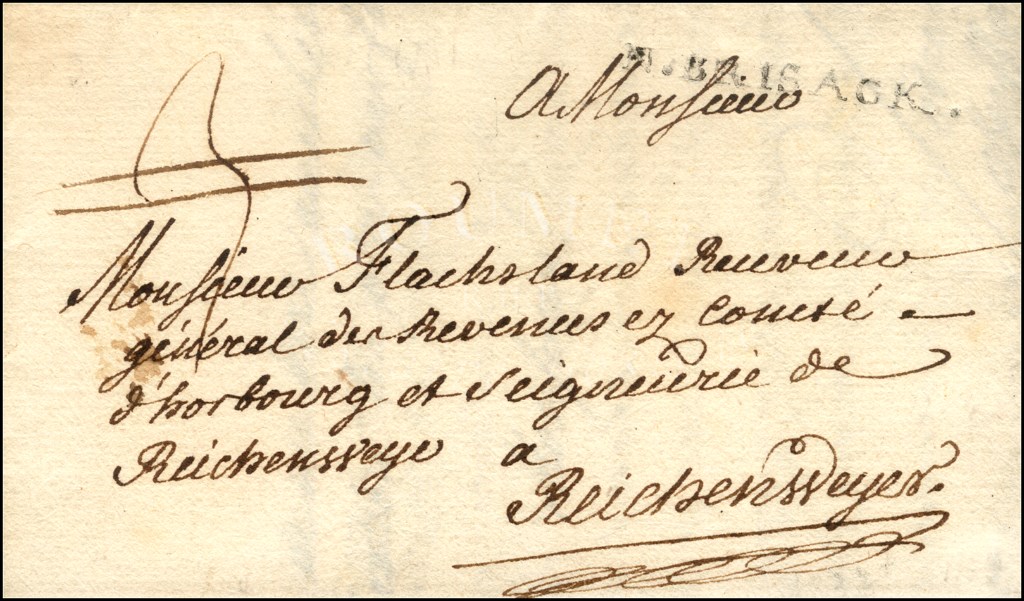 N. BRISACK.
A Monsieur
3
Monsieur Flachsland Receveur
général des Revenues ez Comté
d'horbourg et Seigneurie de
Reichenweyer a
Reichenweyer.